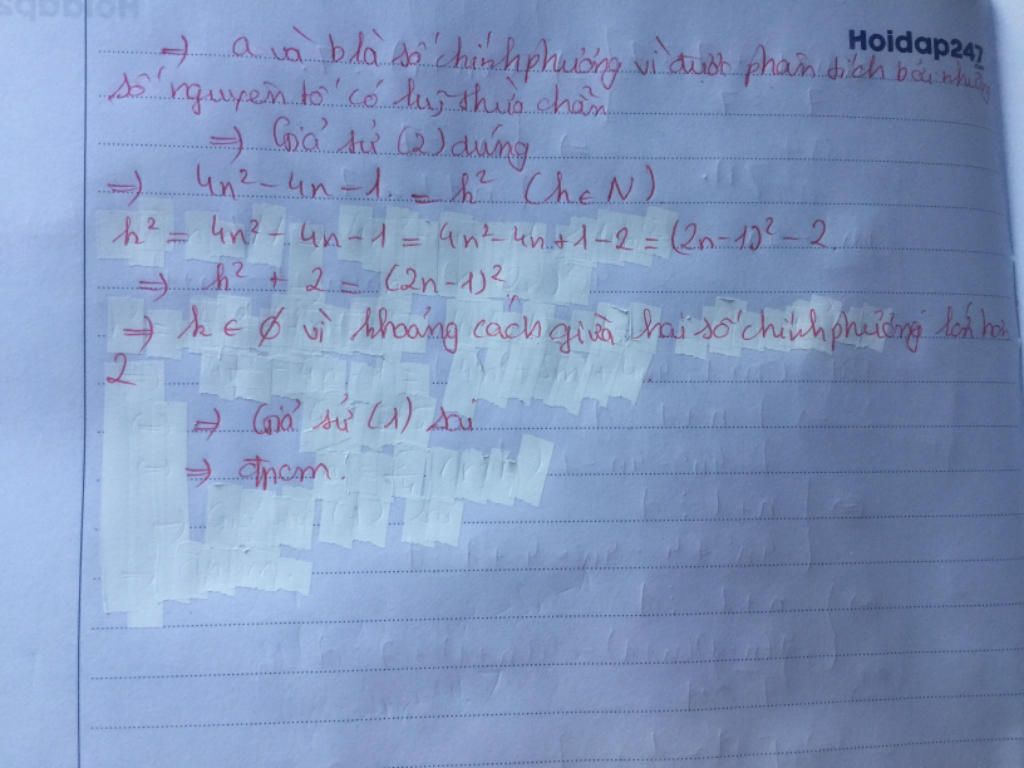 Hoidap247
=> a và b là số chính phương vì được phân tích bởi những
số nguyên tố có luỹ thừa chẵn
=> Giả sử (2) đúng
=> 4n² - 4n - 1 = k² (k ∈ N)
k² = 4n² - 4n - 1 = 4n² - 4n + 1 - 2 = (2n-1)² - 2
=> k² + 2 = (2n-1)²
=> k ∈ ∅ vì khoảng cách giữa hai số chính phương lớn hơn
2
=> Giả sử (1) sai
=> đpcm.